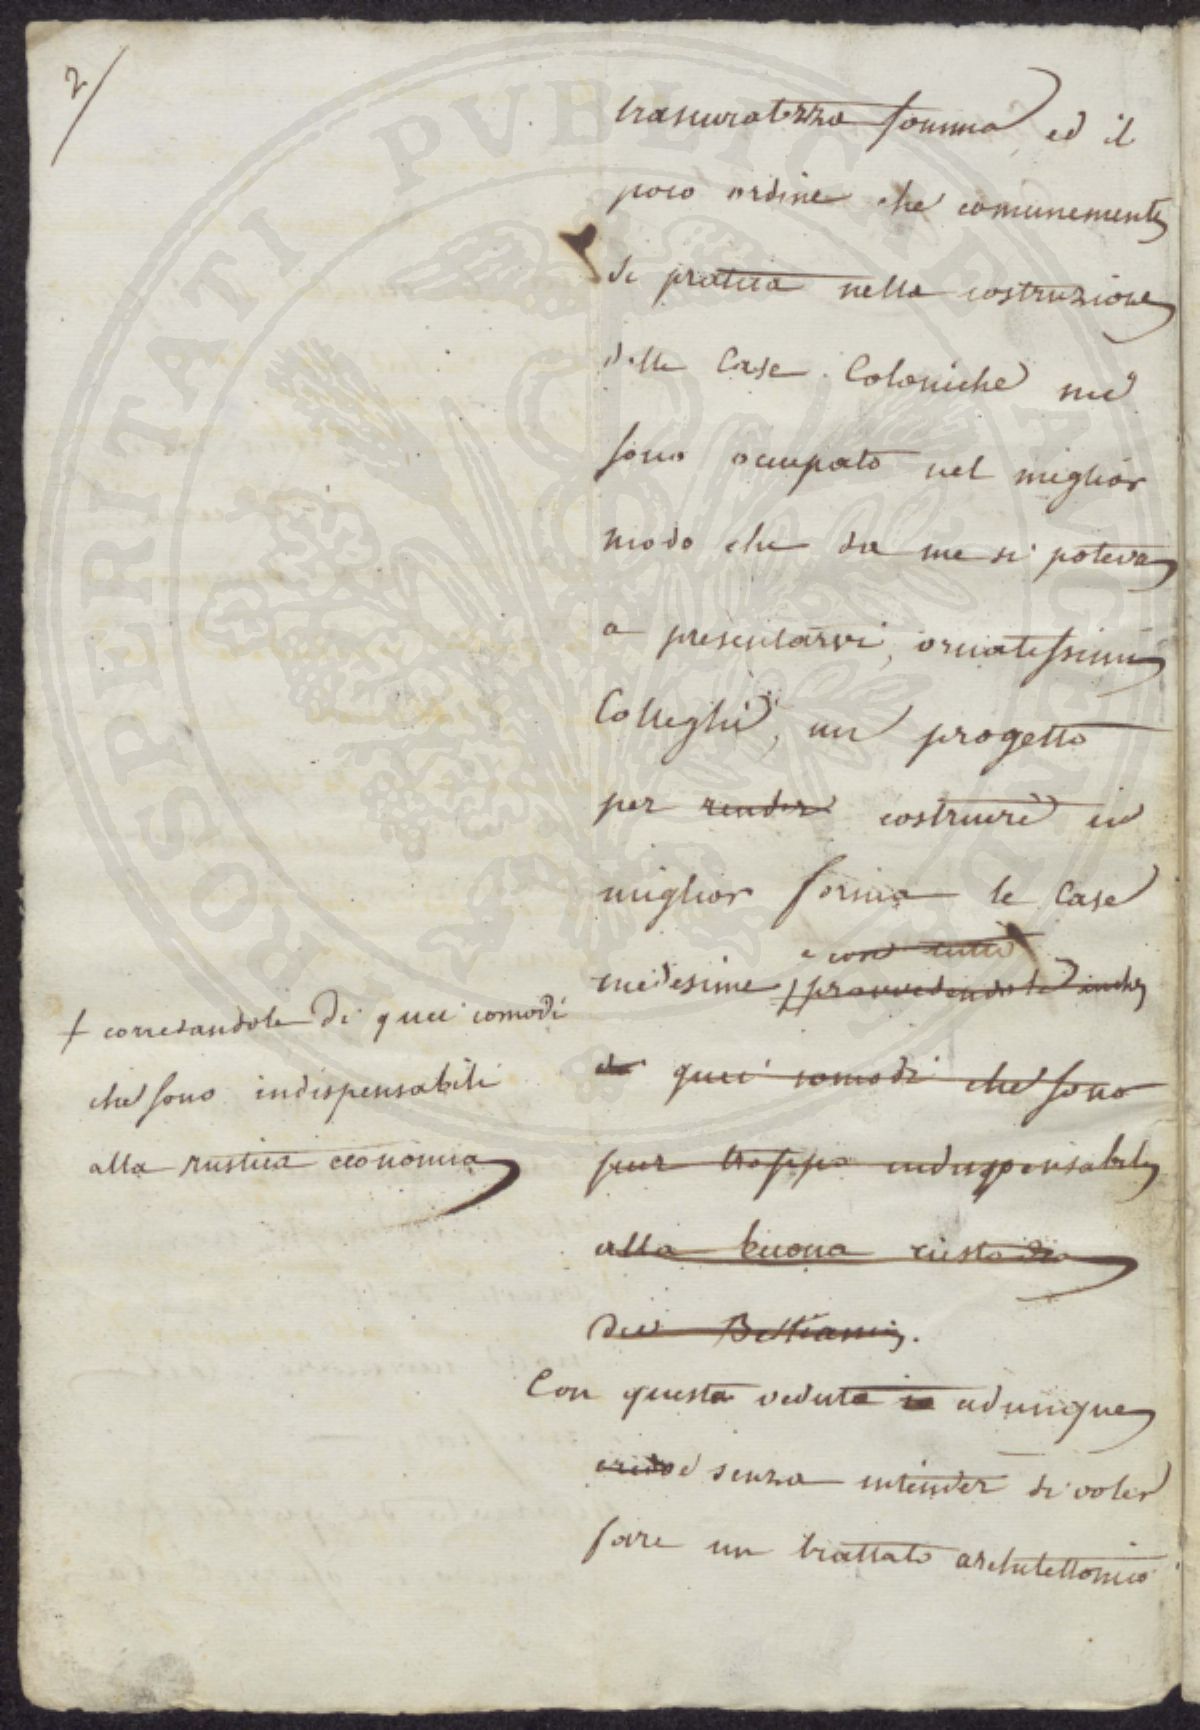 2/
trascuratezza somma, ed il
poco ordine che comunemente
si pratica nella costruzione
delle Case Coloniche mi
sono occupato nel miglior
modo che da me si poteva
a presentarvi, ornatissimi
Colleghi, un progetto
per render costruire in
miglior forma le Case
e con tutti
medesime provvedendole
quei comodi che sono
pur troppo indispensabili
alla buona custodia
dei Bestiami.
Con questa veduta io adunque
credo e senza intender di voler
fare un trattato architettonico
+ corredandole di quei comodi
che sono indispensabili
alla rustica economia
PROSPERITATI PVBLICAE AVGENDAE